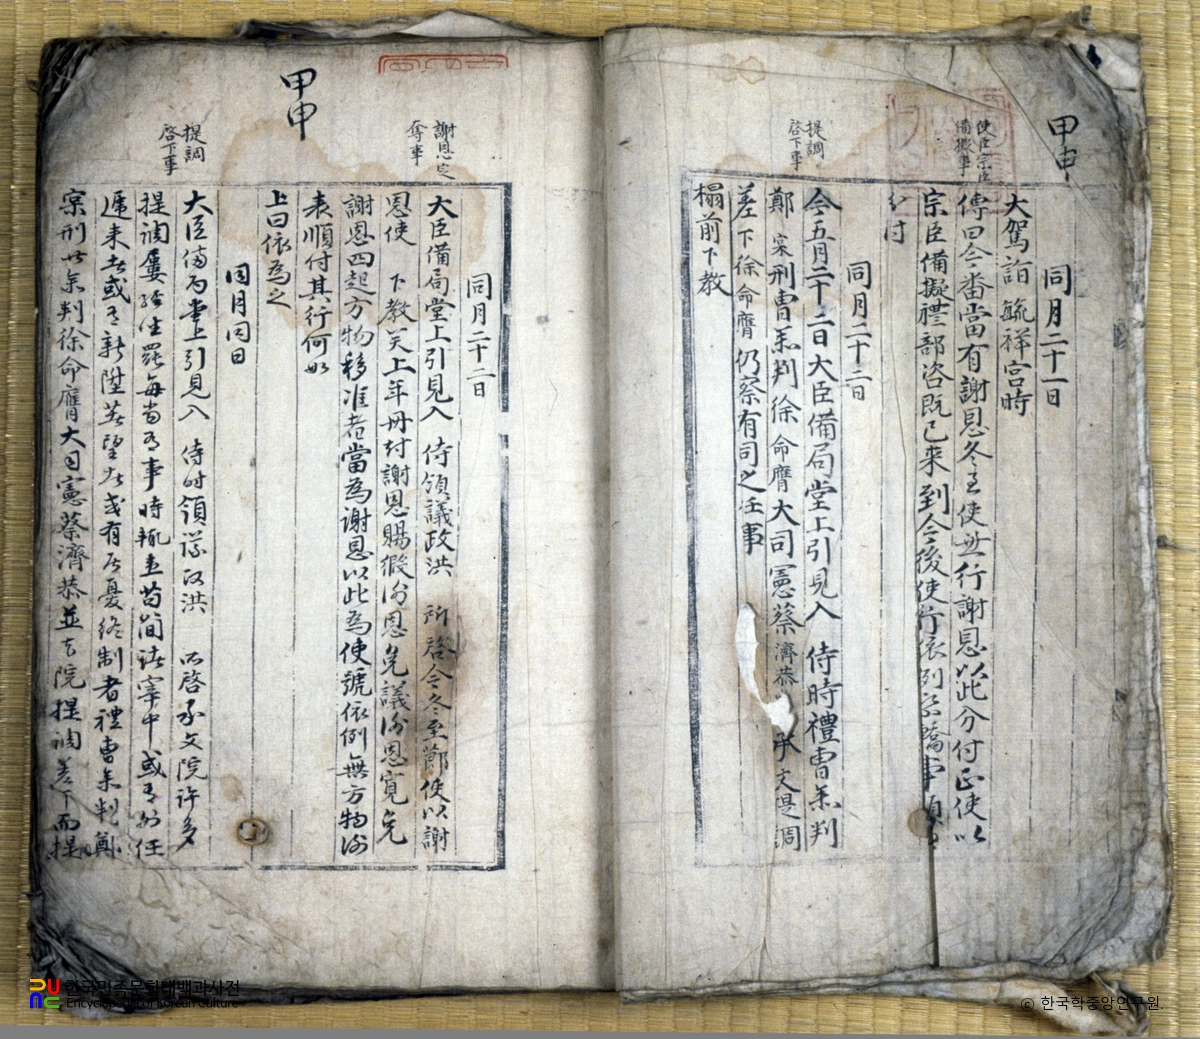 甲申
使臣宗臣
備擬事
同月二十一日
大駕詣 毓祥宮時
傳曰今番當有謝恩冬至使無行謝恩以此分付正使以
宗臣備擬禮部咨既已來到今後使行
分付
提調
啓下事
同月二十二日
今五月二十二日大臣備局堂上引見入 侍時禮曹參判
鄭 宷刑曹參判徐命膺大司憲蔡濟恭 承文提調
差下徐命膺仍察有司之任事
榻前下教
謝恩定
奪事
同月二十二日
大臣備局堂上引見入 侍領議政洪 所啓今冬至節使以謝
恩使 下教矣上年冊封謝恩賜緞謝恩免議謝恩寬免
謝恩四起方物移准者當為謝恩以此為使號依例無方物謝
表順付其行何如
上曰依為之
甲申
提調
啓下事
同月同日
大臣備局堂上引見入 侍時領議政洪 所啓承文院許多
提調屢經生罷每當有事時輒患苟簡諸宰中或有外任
遞來者或有新陞者有居憂終制者禮曹參判鄭
宷刑曹參判徐命膺大司憲蔡濟恭並本院提調差下而提
한국민족문화대백과사전
Encyclopedia of Korean Culture
© 한국학중앙연구원.